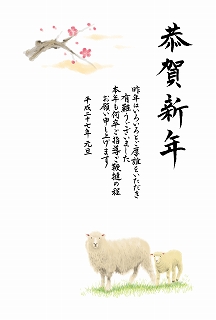 恭賀新年
昨年はいろいろとご厚誼をいただき
有難うございました
本年も何卒ご指導ご鞭撻の程
お願い申し上げます
平成二十七年 元旦